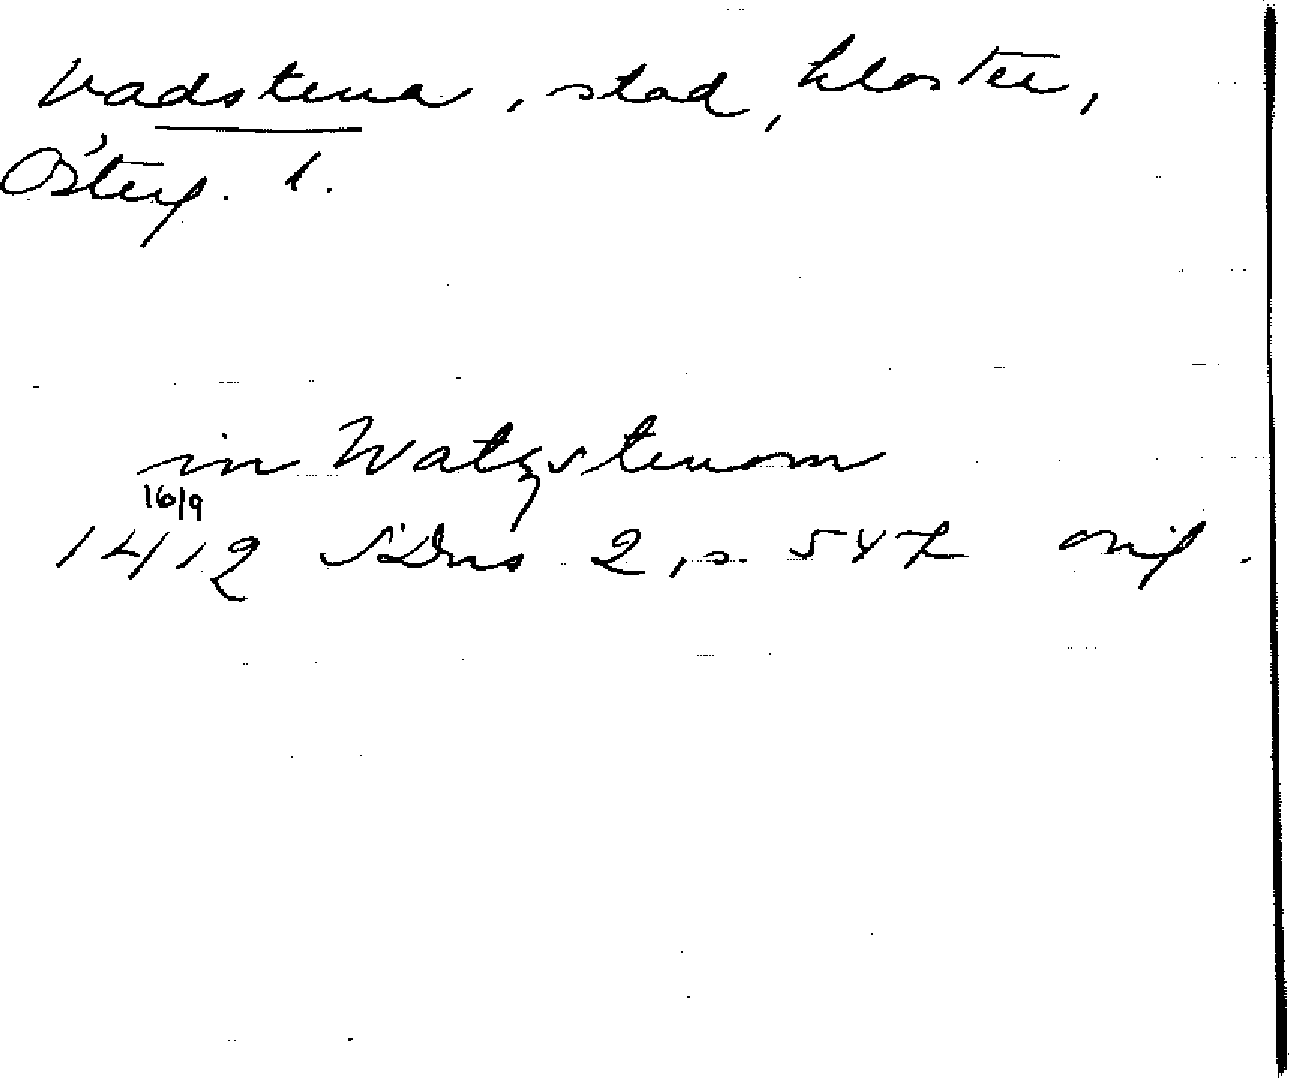 Vadstena, stad, kloster,
Österg. l.
in Watzstenom
16/9
1412 SDns 2, s. 547 orig.